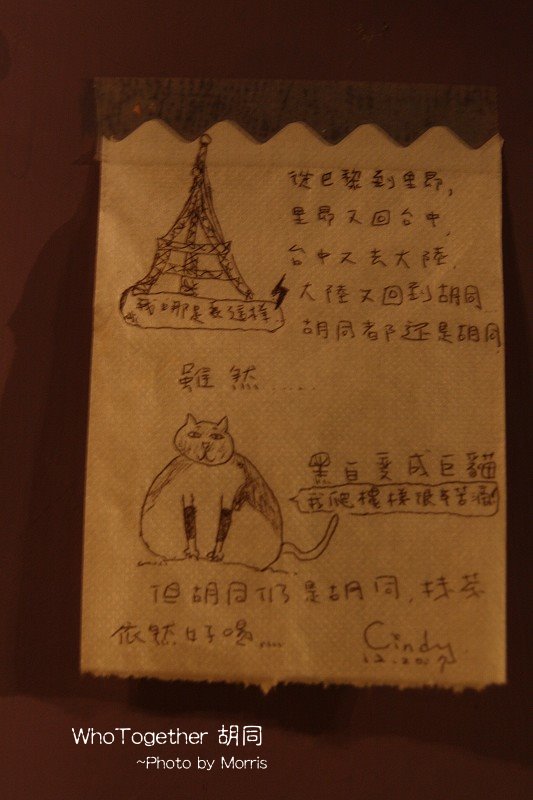 從巴黎到里昂,
里昂又回台中,
台中又去大陸,
大陸又回到胡同
胡同都還是胡同
雖然......
黑白變成巨貓
我爬樓梯很辛苦喔!
但胡同仍是胡同,抹茶
依然好喝....
Cindy
WhoTogether 胡同
~Photo by Morris